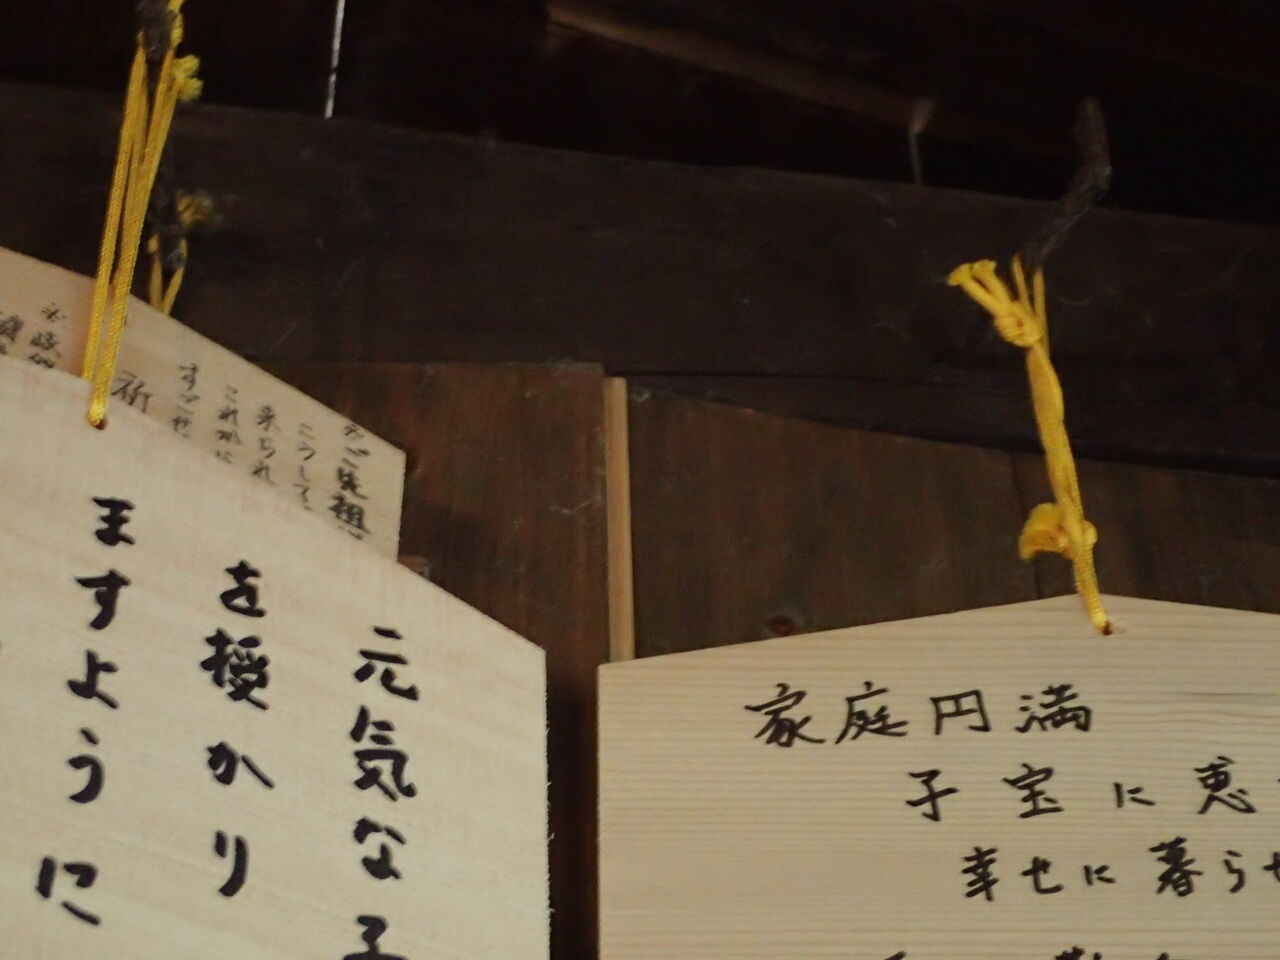 元気な子
を授かり
ますように
家庭円満
子宝に恵
幸せに暮らせ
ご先祖
こうして
来られ
これからに
すごせ
祈